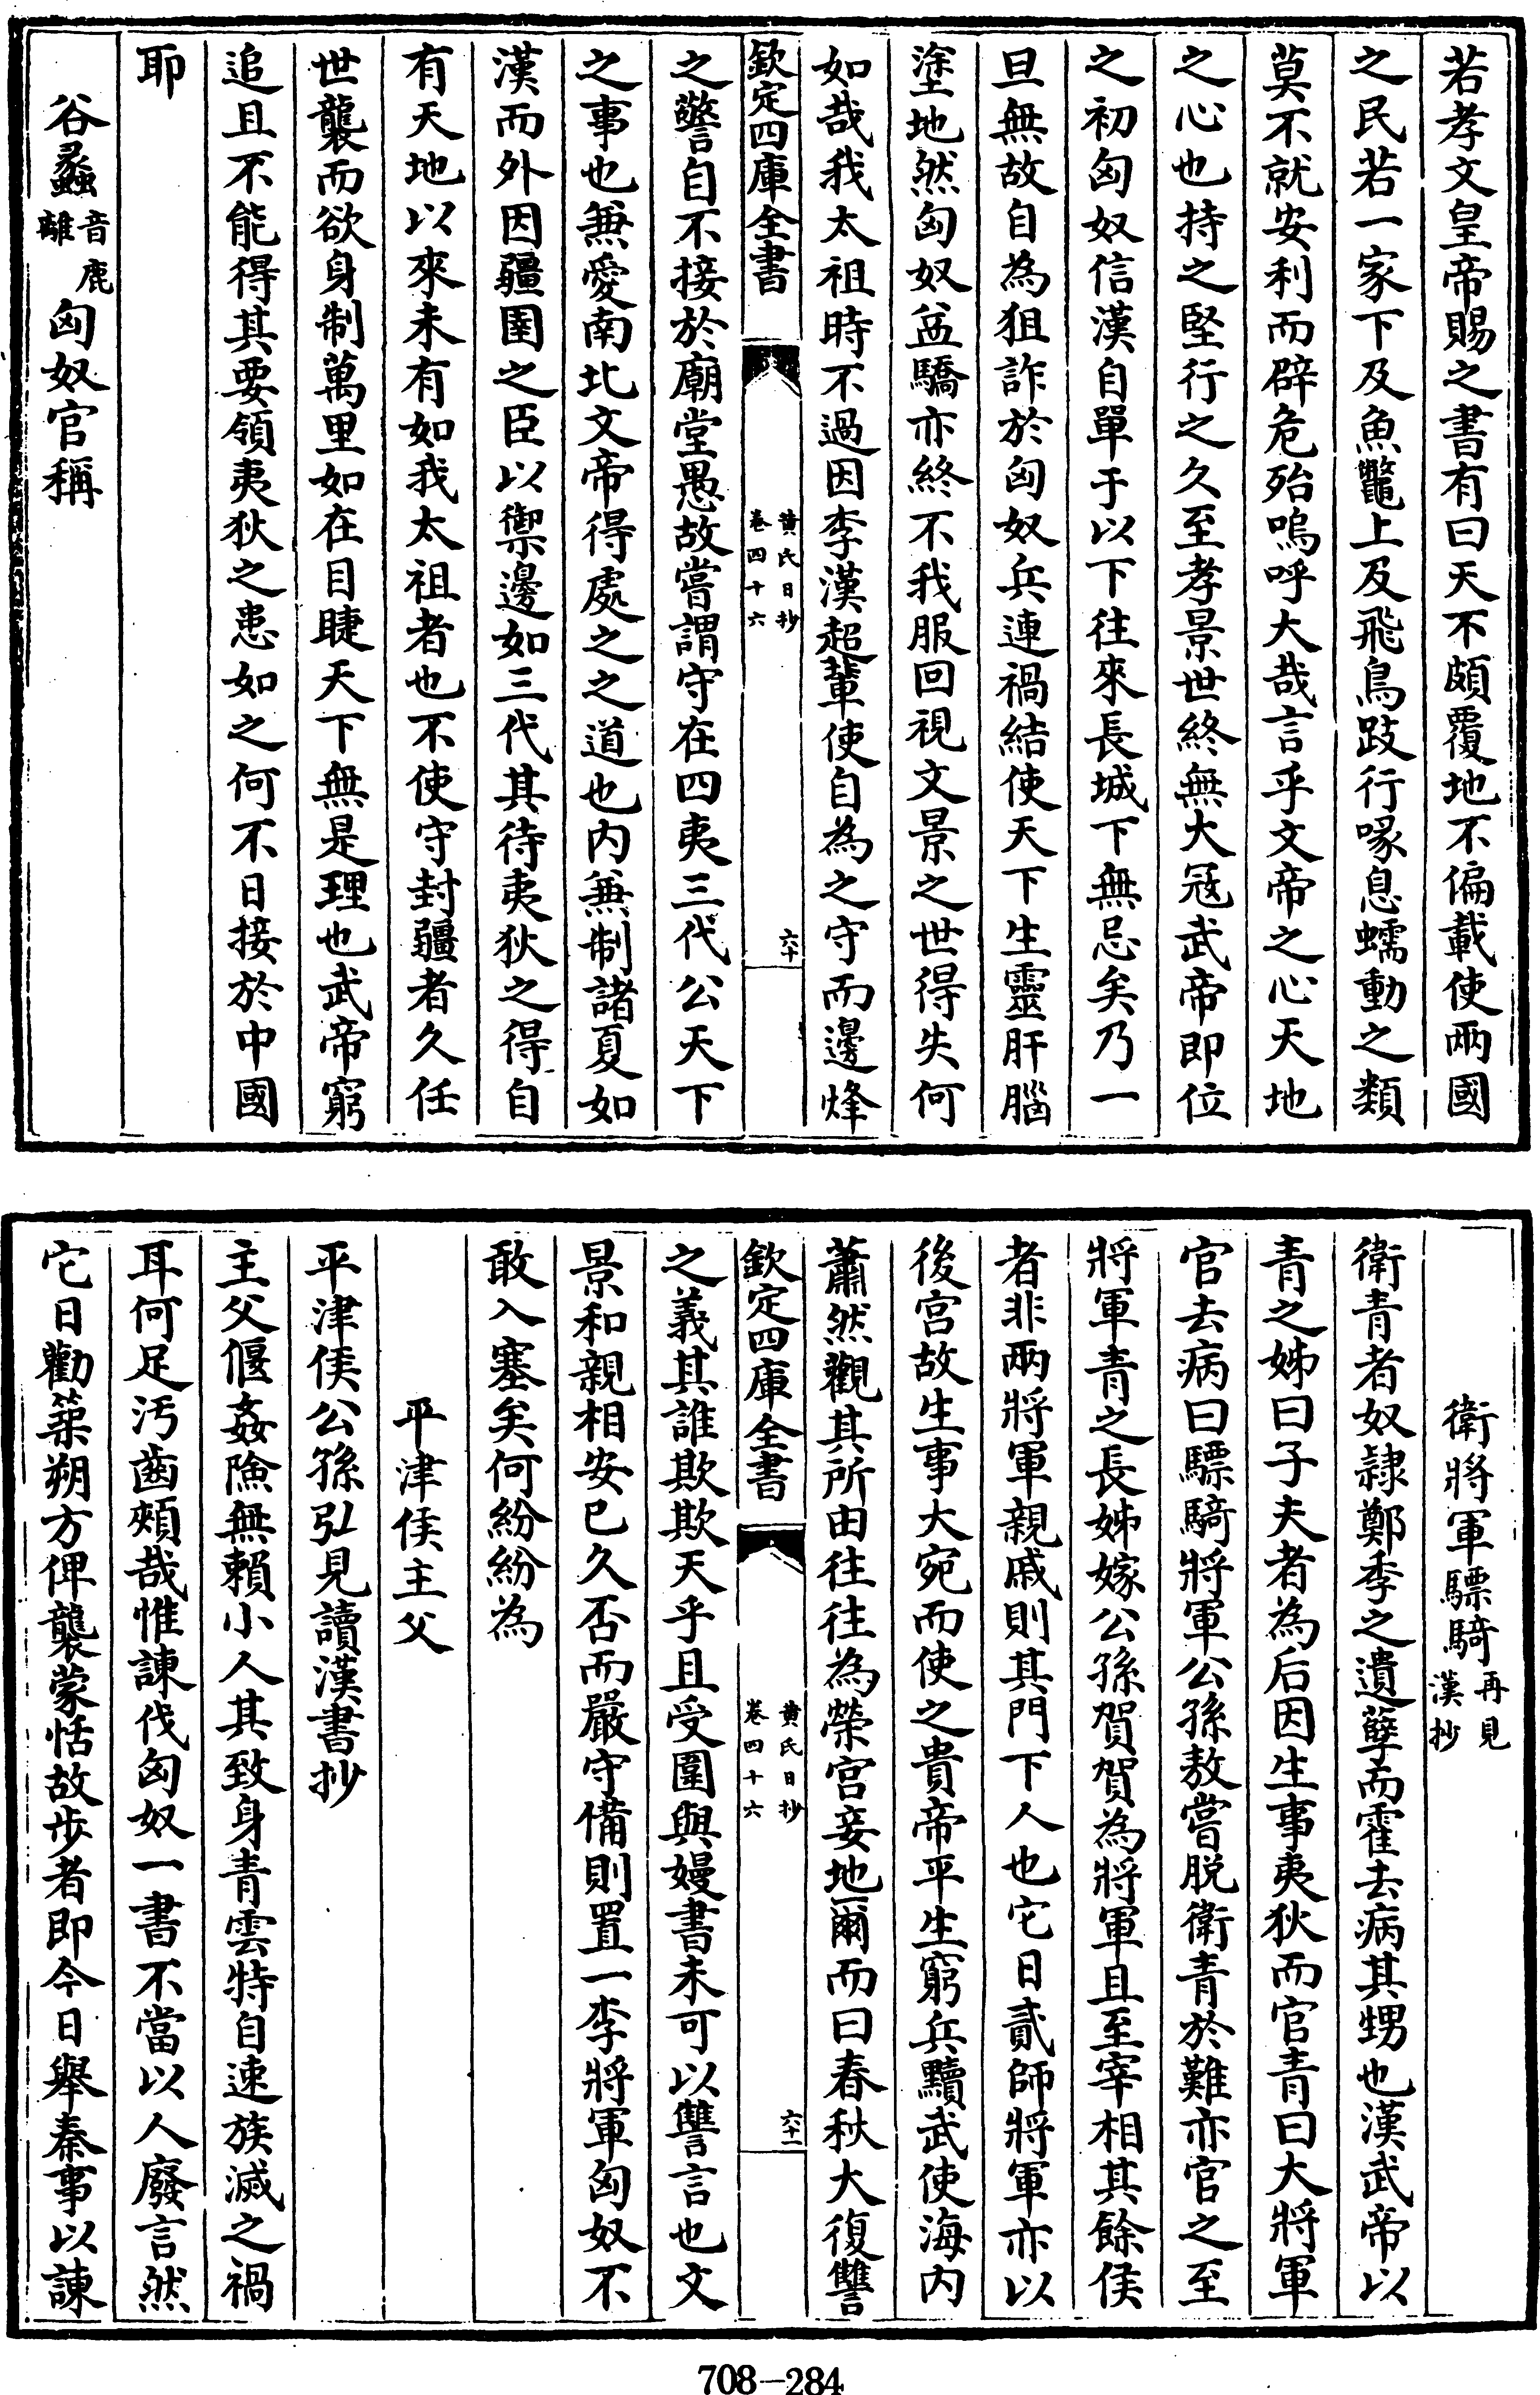 若孝文皇帝賜之書有曰天不頗覆地不偏載使兩國
之民若一家下及魚鼈上及飛鳥跂行喙息蠕動之類
莫不就安利而辟危殆嗚呼大哉言乎文帝之心天地
之心也持之堅行之久至孝景世終無大冦武帝即位
之初匈奴信漢自單于以下往來長城下無忌矣乃一
旦無故自為狙詐於匈奴兵連禍結使天下生靈肝腦
塗地然匈奴益驕亦終不我服回視文景之世得失何
如哉我太祖時不過因李漢超輩使自為之守而邊烽
欽定四庫全書
黄氏日抄
卷四十六
六十
之警自不接於廟堂愚故嘗謂守在四夷三代公天下
之事也兼愛南北文帝得處之之道也内無制諸夏如
漢而外因疆圉之臣以禦邊如三代其待夷狄之得自
有天地以來未有如我太祖者也不使守封疆者久任
世襲而欲身制萬里如在目睫天下無是理也武帝窮
追且不能得其要領夷狄之患如之何不日接於中國
耶
谷蠡音鹿離匈奴官稱
衛將軍驃騎再見漢抄
衛青者奴隷鄭季之遺孽而霍去病其甥也漢武帝以
青之姊曰子夫者為后因生事夷狄而官青曰大將軍
官去病曰驃騎將軍公孫敖嘗脱衛青於難亦官之至
將軍青之長姊嫁公孫賀賀為將軍且至宰相其餘侯
者非兩將軍親戚則其門下人也它日貳師將軍亦以
後宫故生事大宛而使之貴帝平生窮兵黷武使海内
蕭然觀其所由往往為榮宫妾地爾而曰春秋大復讐
欽定四庫全書
黄氏日抄
卷四十六
六十一
之義其誰欺欺天乎且受圍與嫚書未可以讐言也文
景和親相安已久否而嚴守備則置一李將軍匈奴不
敢入塞矣何紛紛為
平津侯主父
平津侯公孫弘見讀漢書抄
主父偃姦險無賴小人其致身青雲特自速族滅之禍
耳何足汚齒頰哉惟諫伐匈奴一書不當以人廢言然
它日勸築朔方俾襲蒙恬故步者即今日舉秦事以諫
708-284